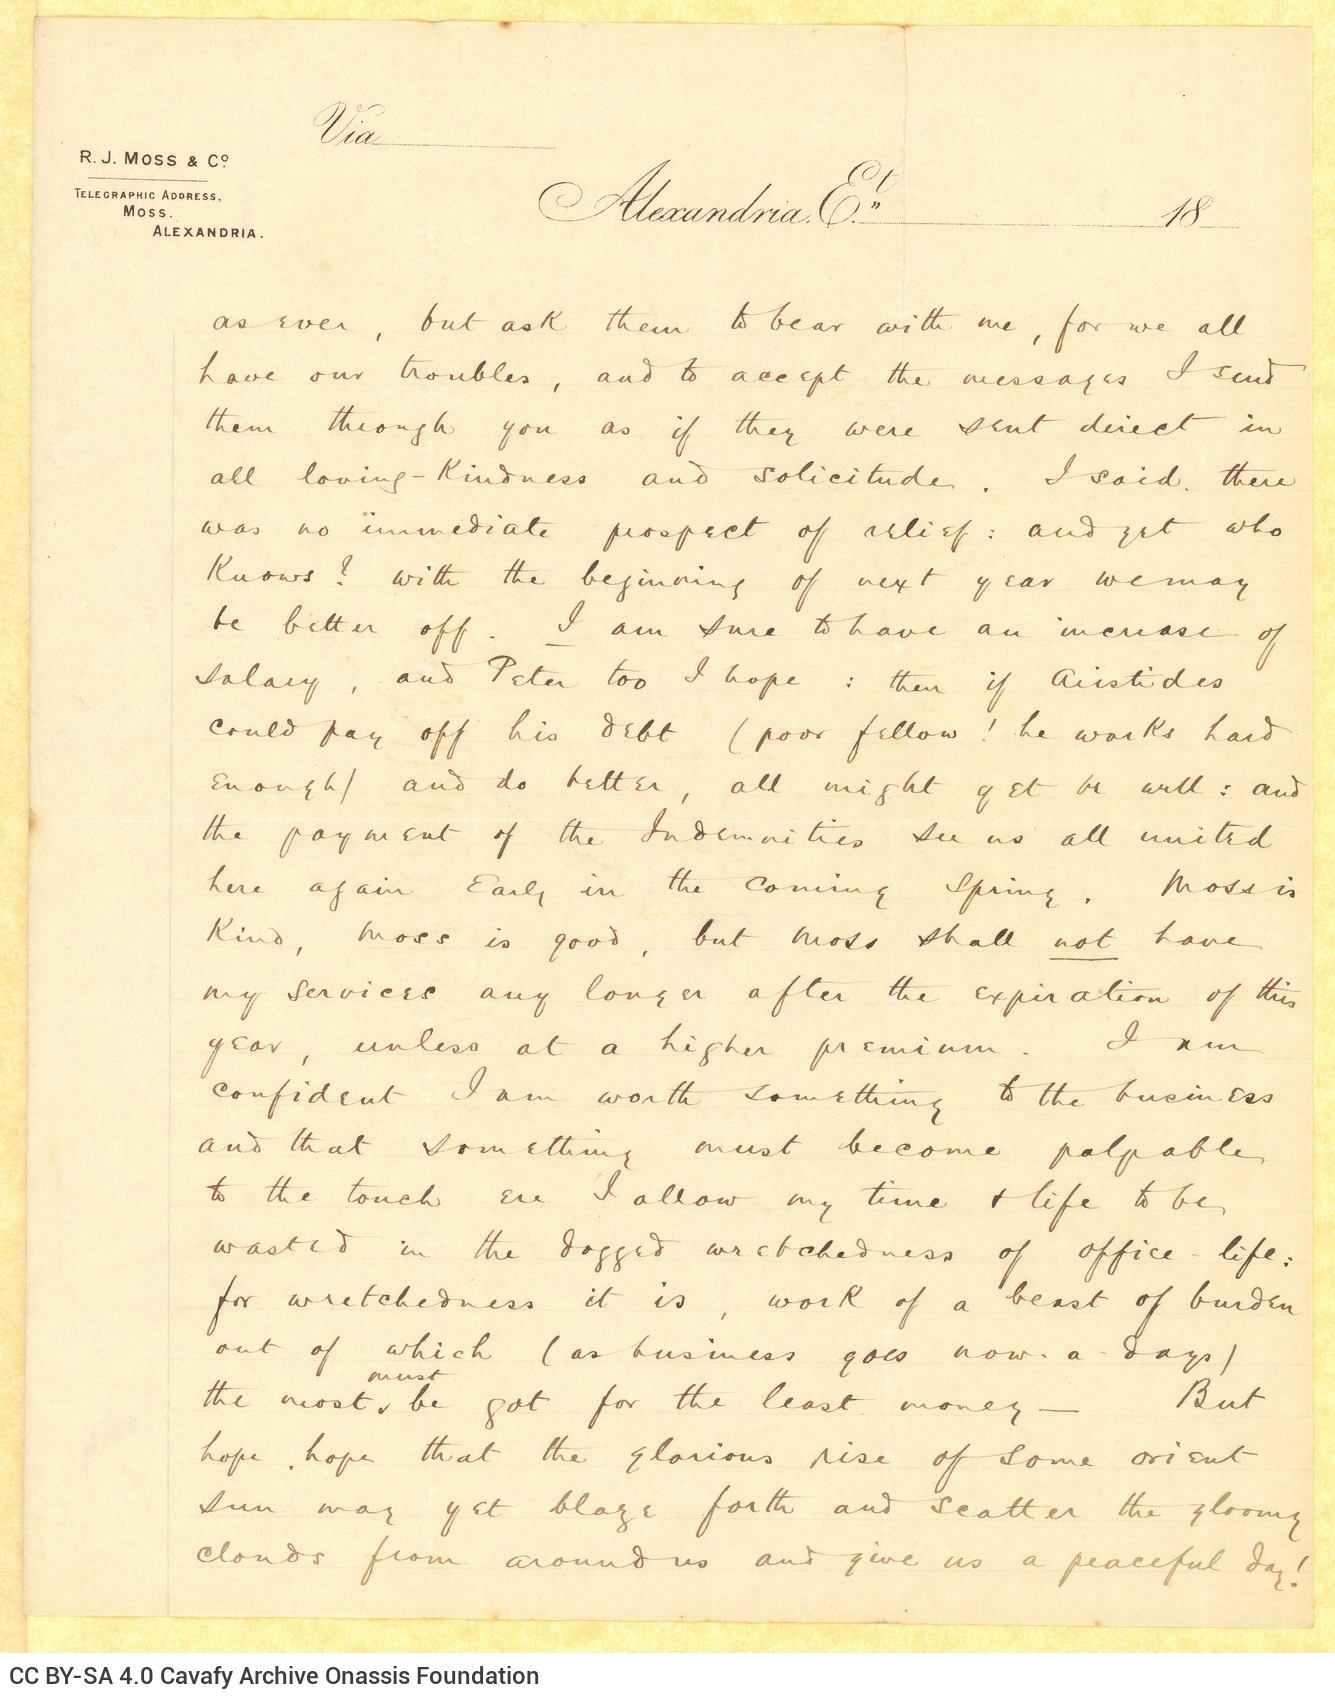 Via
R. J. MOSS & Cº
TELEGRAPHIC ADDRESS,
MOSS.
ALEXANDRIA.
Alexandria. Et. 18
as ever, but ask them to bear with me, for we all
have our troubles, and to accept the messages I send
them through you as if they were sent direct in
all loving-kindness and solicitude. I said there
was no immediate prospect of relief: and yet who
knows? with the beginning of next year we may
be better off. I am sure to have an increase of
salary, and Peter too I hope: then if Aristides
could pay off his debt (poor fellow! he works hard
enough) and do better, all might yet be well: and
the payment of the Indemnities see us all united
here again early in the coming Spring. Moss is
kind, Moss is good, but Moss shall not have
my services any longer after the expiration of this
year, unless at a higher premium. I am
confident I am worth something to the business
and that something must become palpable
to the touch ere I allow my time & life to be
wasted in the dogged wretchedness of office-life:
for wretchedness it is, work of a beast of burden
out of which (as business goes now-a-days)
must
the most be got for the least money — But
hope, hope that the glorious rise of some orient
sun may yet blaze forth and scatter the gloomy
clouds from around us and give us a peaceful day!
CC BY-SA 4.0 Cavafy Archive Onassis Foundation